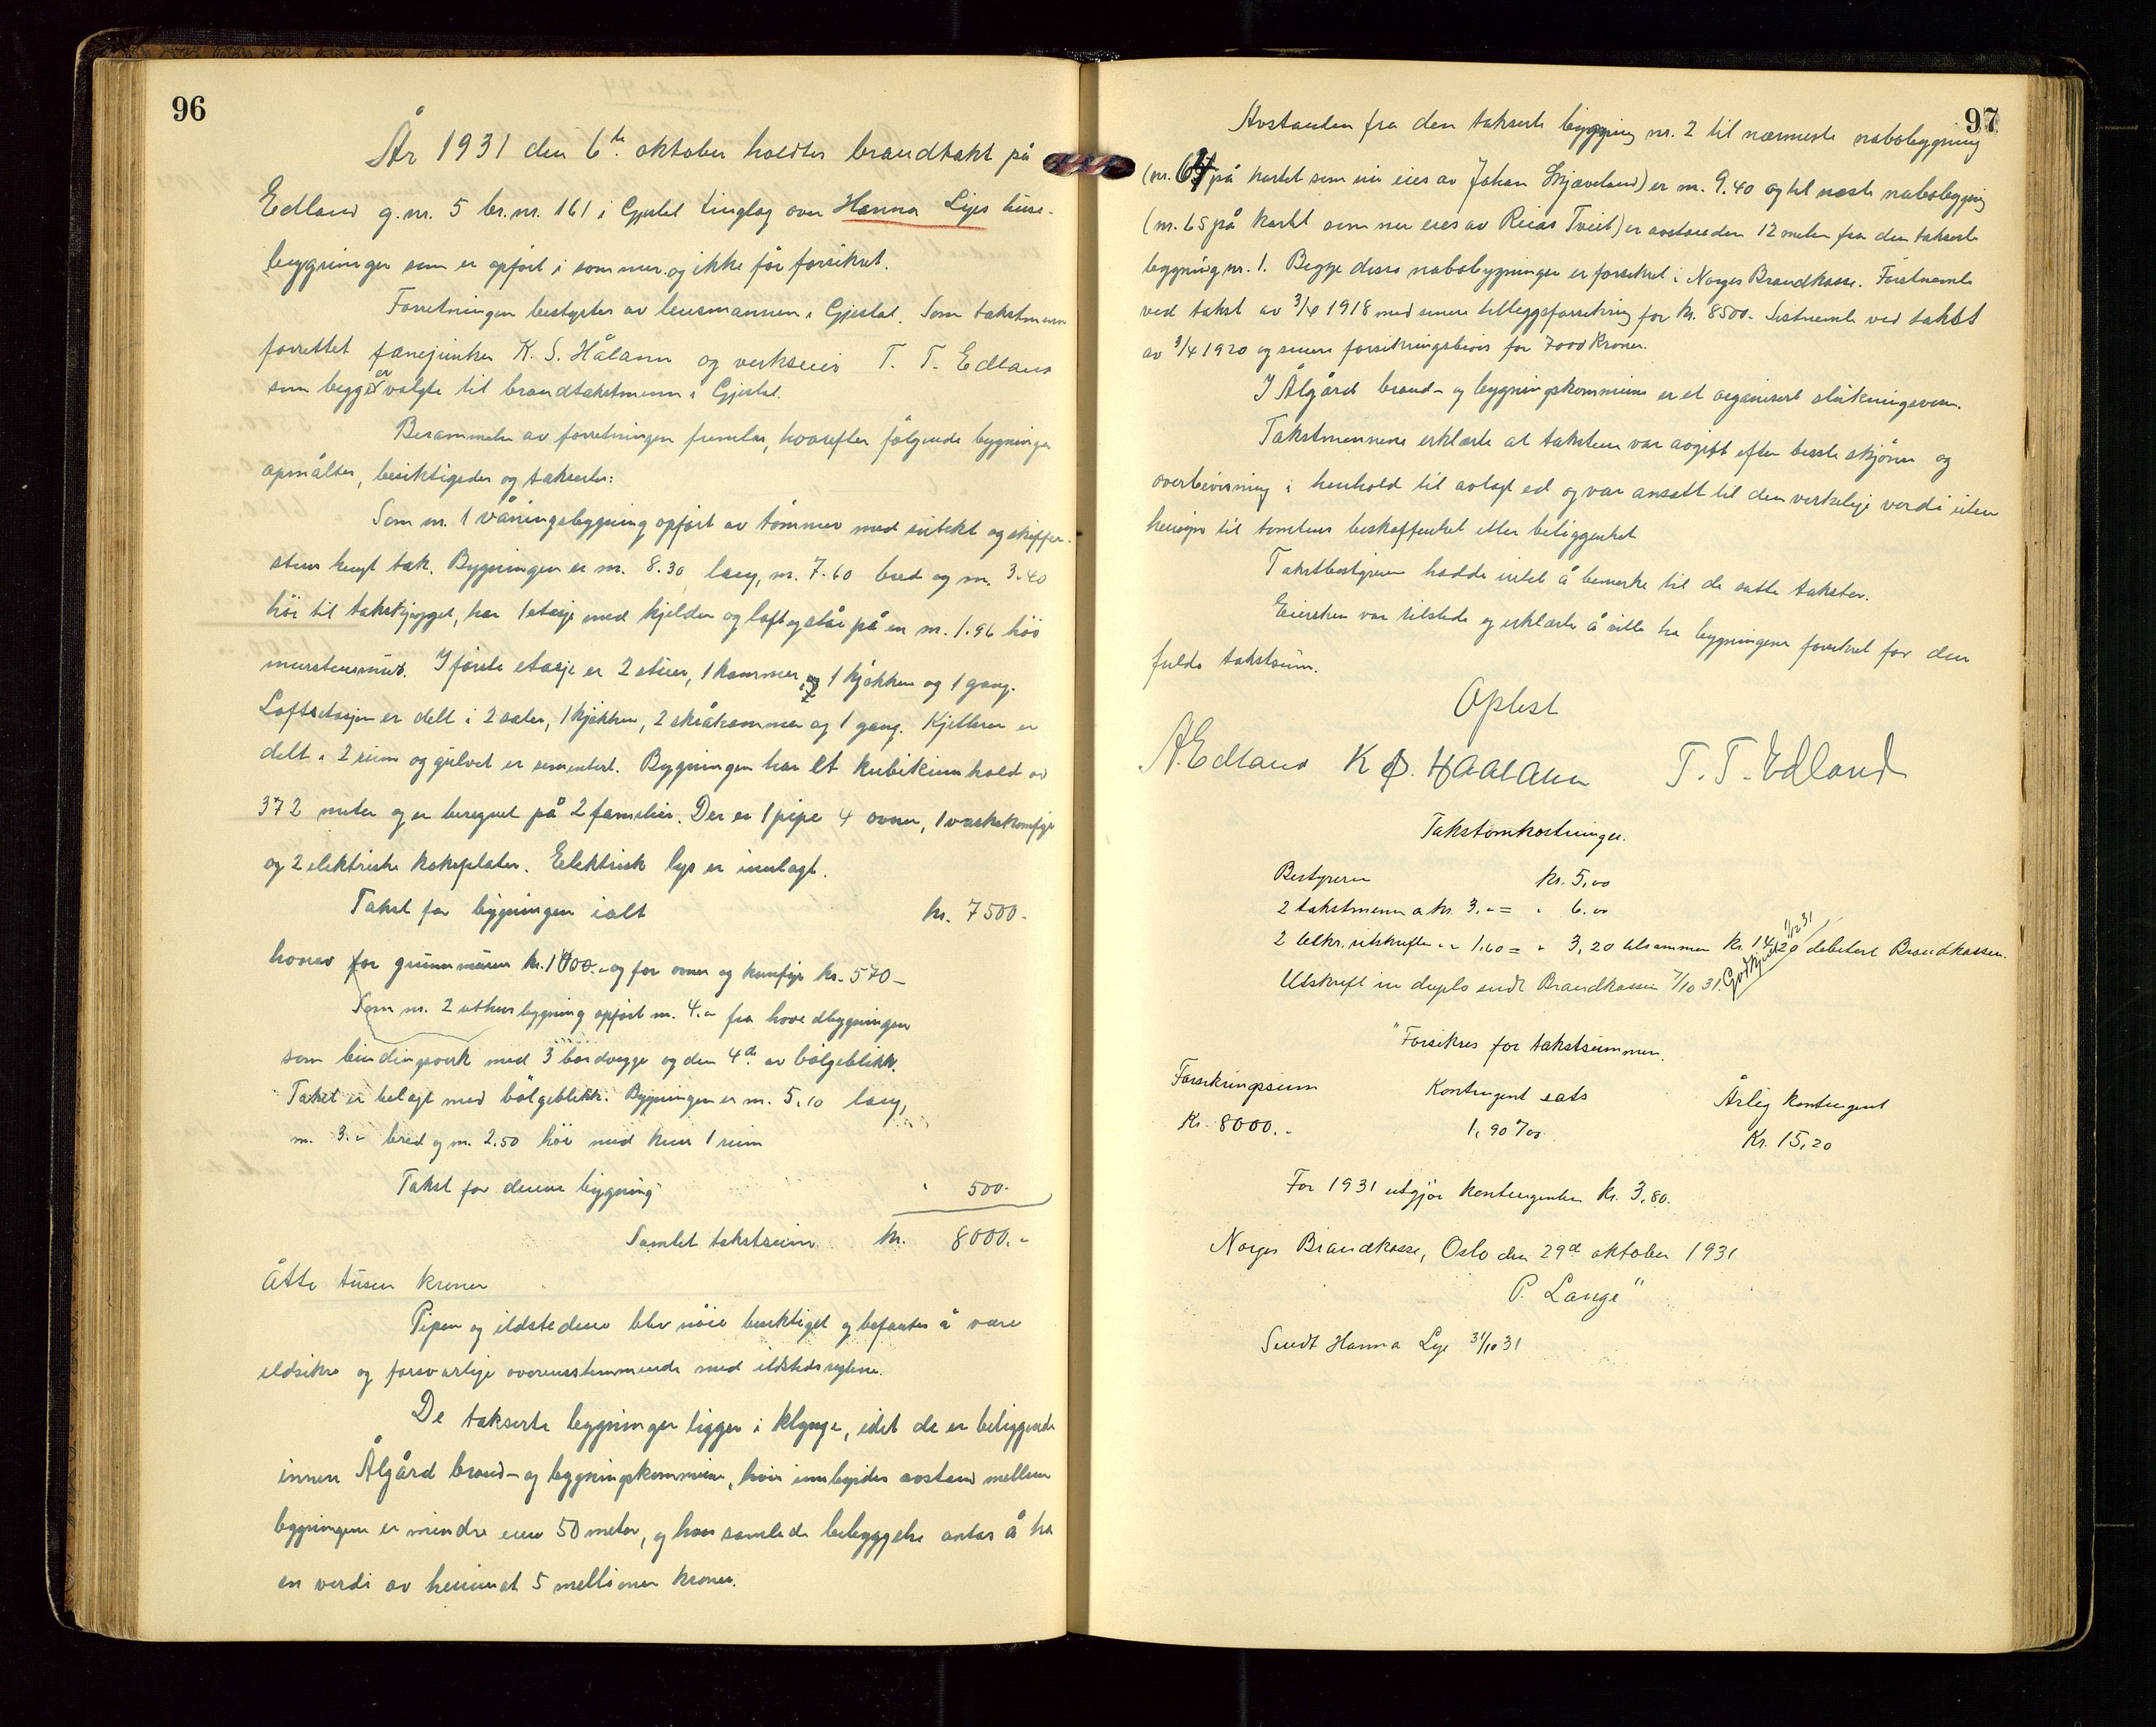 96
År 1931 den 6te oktober holdtes brandtakt på
Edland g.nr. 5 br.nr. 161 i Gjestal tinglag over Hanna Lyes huse-
bygninger som er opført i sommer og ikke før forsikret.
Forretningen bestyrtes av lensmannen i Gjestal. Som takstmenn
forrettet fanejunker K. S. Hålann og verkseier T. T. Edland
som begge er valgte til brandtakstmenn i Gjestal.
Berammelse av forretningen fremlas, hvorefter følgende bygninger
opmåltes, besiktigedes og takserter:
Som nr. 1 våningsbygning opført av tømmer med sutekt og skiffer-
stens hengt tak. Bygningen er m. 8.30 lang, m. 7.60 bred og m. 3.40
høi til takskjegget, har 1 etasje med kjelder og loft og står på en m. 1.96 høi
murstensmur. I første etasje er 2 stuer, 1 kammer, 1 kjøkken og 1 gang.
Loftsetasjen er delt i 2 saler, 1 kjøkken, 2 skråkammer og 1 gang. Kjelleren er
delt i 2 rum og gulvet er sementert. Bygningen har et kubikinnhold av
372 meter og er beregnet på 2 familier. Der er 1 pipe 4 ovner, 1 vaskekomfyr
og 2 elektriske kokeplater. Elektrisk lys er innlagt.
Takst for bygningen ialt kr. 7500.-
hvorav for grunnmuren kr. 1000.- og for ovner og komfyr kr. 570-
Som nr. 2 uthusbygning opført m. 4.- fra hovedbygningen
som bindingsverk med 3 bordvegge og den 4de av bølgeblikk.
Taket er belagt med bølgeblikk. Bygningen er m. 5.10 lang,
m. 3.- bred og m. 2.50 høi med kun 1 rum
Takst for denne bygning " 500.-
Samlet takstsum kr. 8000.-
Åtte tusen kroner
Pipen og ildstedene blev nøie besiktiget og befantes å være
ildsikre og forsvarlige overensstemmende med ildstedsreglene.
De takserte bygninger ligger i klynge, idet de er beliggende
innen Ålgård brand- og bygningskommune, hvis innbyrdes avstand mellem
bygningene er mindre enn 50 meter, og hvis samlede bebyggelse antas å ha
en verdi av henimot 5 millioner kroner.
97
Avstanden fra den takserte bygning nr. 2 til nærmeste nabobygning
(nr. 64 på kartet som nu eies av Johan Skjæveland) er m. 9.40 og til neste nabobygning
(nr. 65 på kartet som nu eies av Reias Tveit) er avstanden 12 meter fra den takserte
bygning nr. 1. Begge disse nabobygninger er forsikret i Norges Brandkasse. Førstnevnte
ved takst av 3/4 1918 med senere tilleggsforsikring for kr. 8500.- Sistnevnte ved takst
av 3/4 1920 og senere forsikringsbevis for 7000 kroner.
I Ålgård brand- og bygningskommune er et organisert slukningsvesen.
Takstmennene erklærte at taksten var avgitt efter beste skjønn og
overbevisning i henhold til avlagt ed og var ansatt til den verkelige verdi uten
hensyn til tomtens beskaffenhet eller beliggenhet
Takstbestyreren hadde intet å bemerke til de satte takster.
Eiersken var tilstede og erklærte å ville ha bygningene forsikret for den
fulde takstsum.
Oplest
A. Edland K S. Haalann T. T. Edland
Takstomkostninger.
Bestyreren kr. 5,00
2 takstmenn a kr. 3.- = " 6.00
2 bekr. utskrifter a " 1,60 = " 3,20 tilsammen kr. 14,20 debitert Brandkassen.
Godkjent 1/12 31
Utskrift in duplo sendt Brandkassen 7/10 31.
"Forsikres for takstsummen.
Forsikringssum Kontingent sats Årlig kontingent
Kr. 8000.- 1,90 ‰ Kr. 15,20
For 1931 utgjør kontingenten kr. 3,80.
Norges Brandkasse, Oslo den 29de oktober 1931
P. Lange"
Sendt Hanna Lye 31/10 31